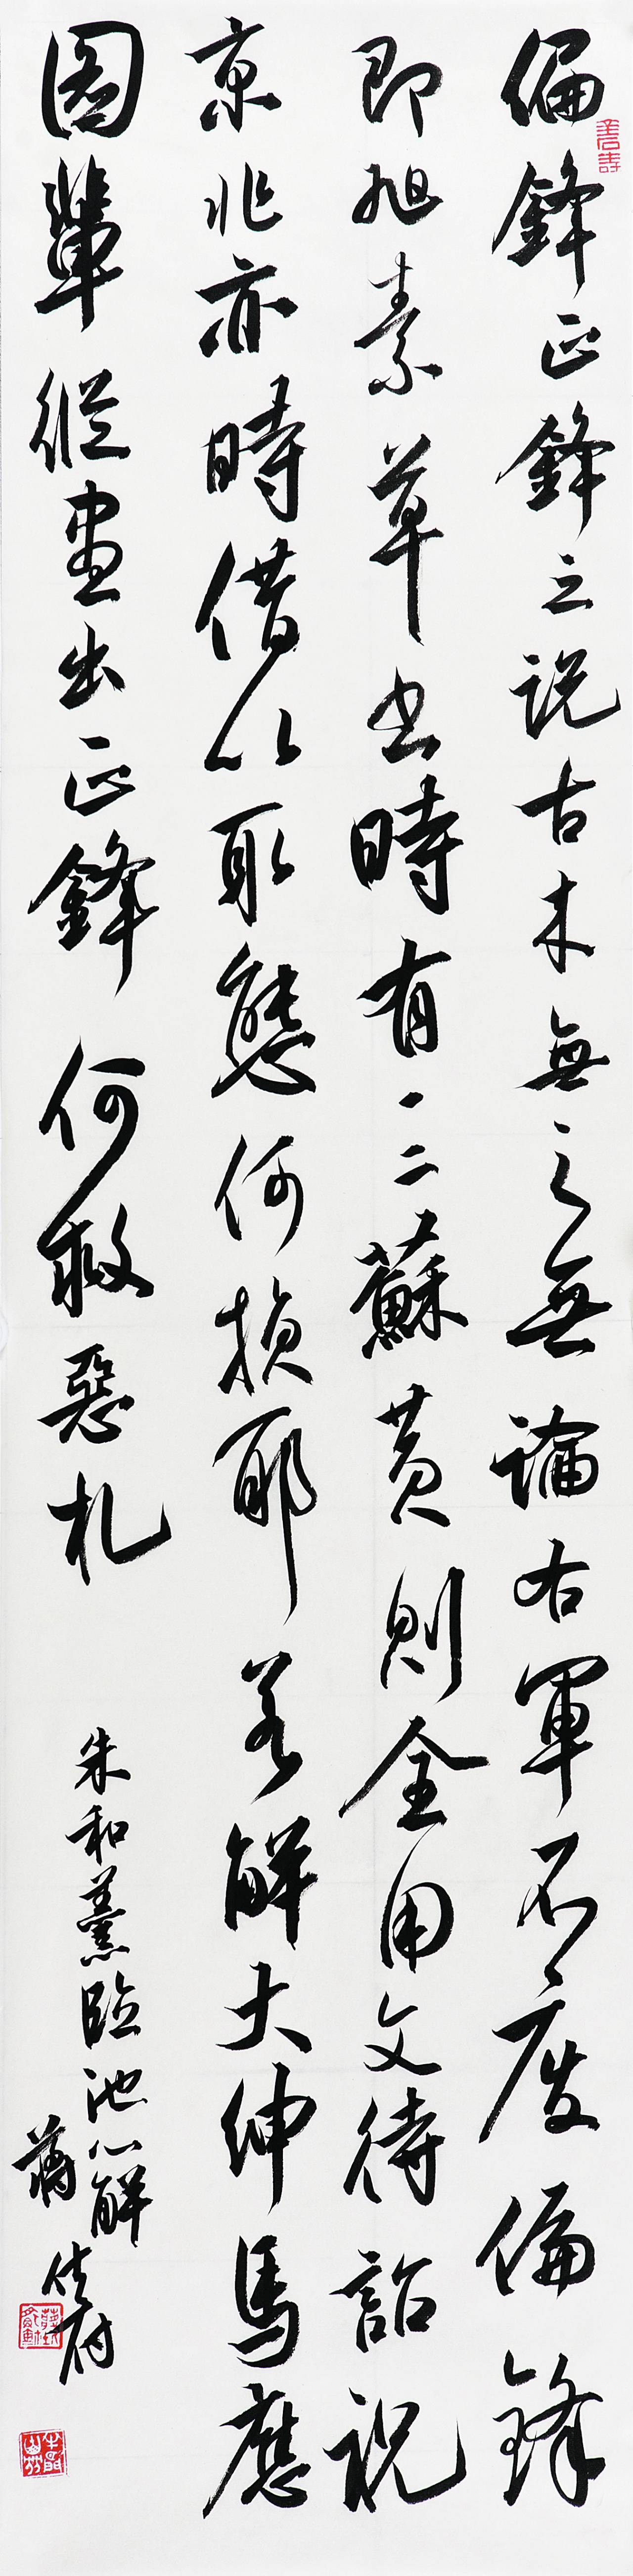 偏鋒正鋒之説古本無之無論右軍不廢偏鋒
即旭素草書時有一二蘇黄則全用文待詔祝
京兆亦時借以取態何損耶若解大紳馬應
圖輩縱盡出正鋒何救惡札
朱和羹臨池心解
蔣